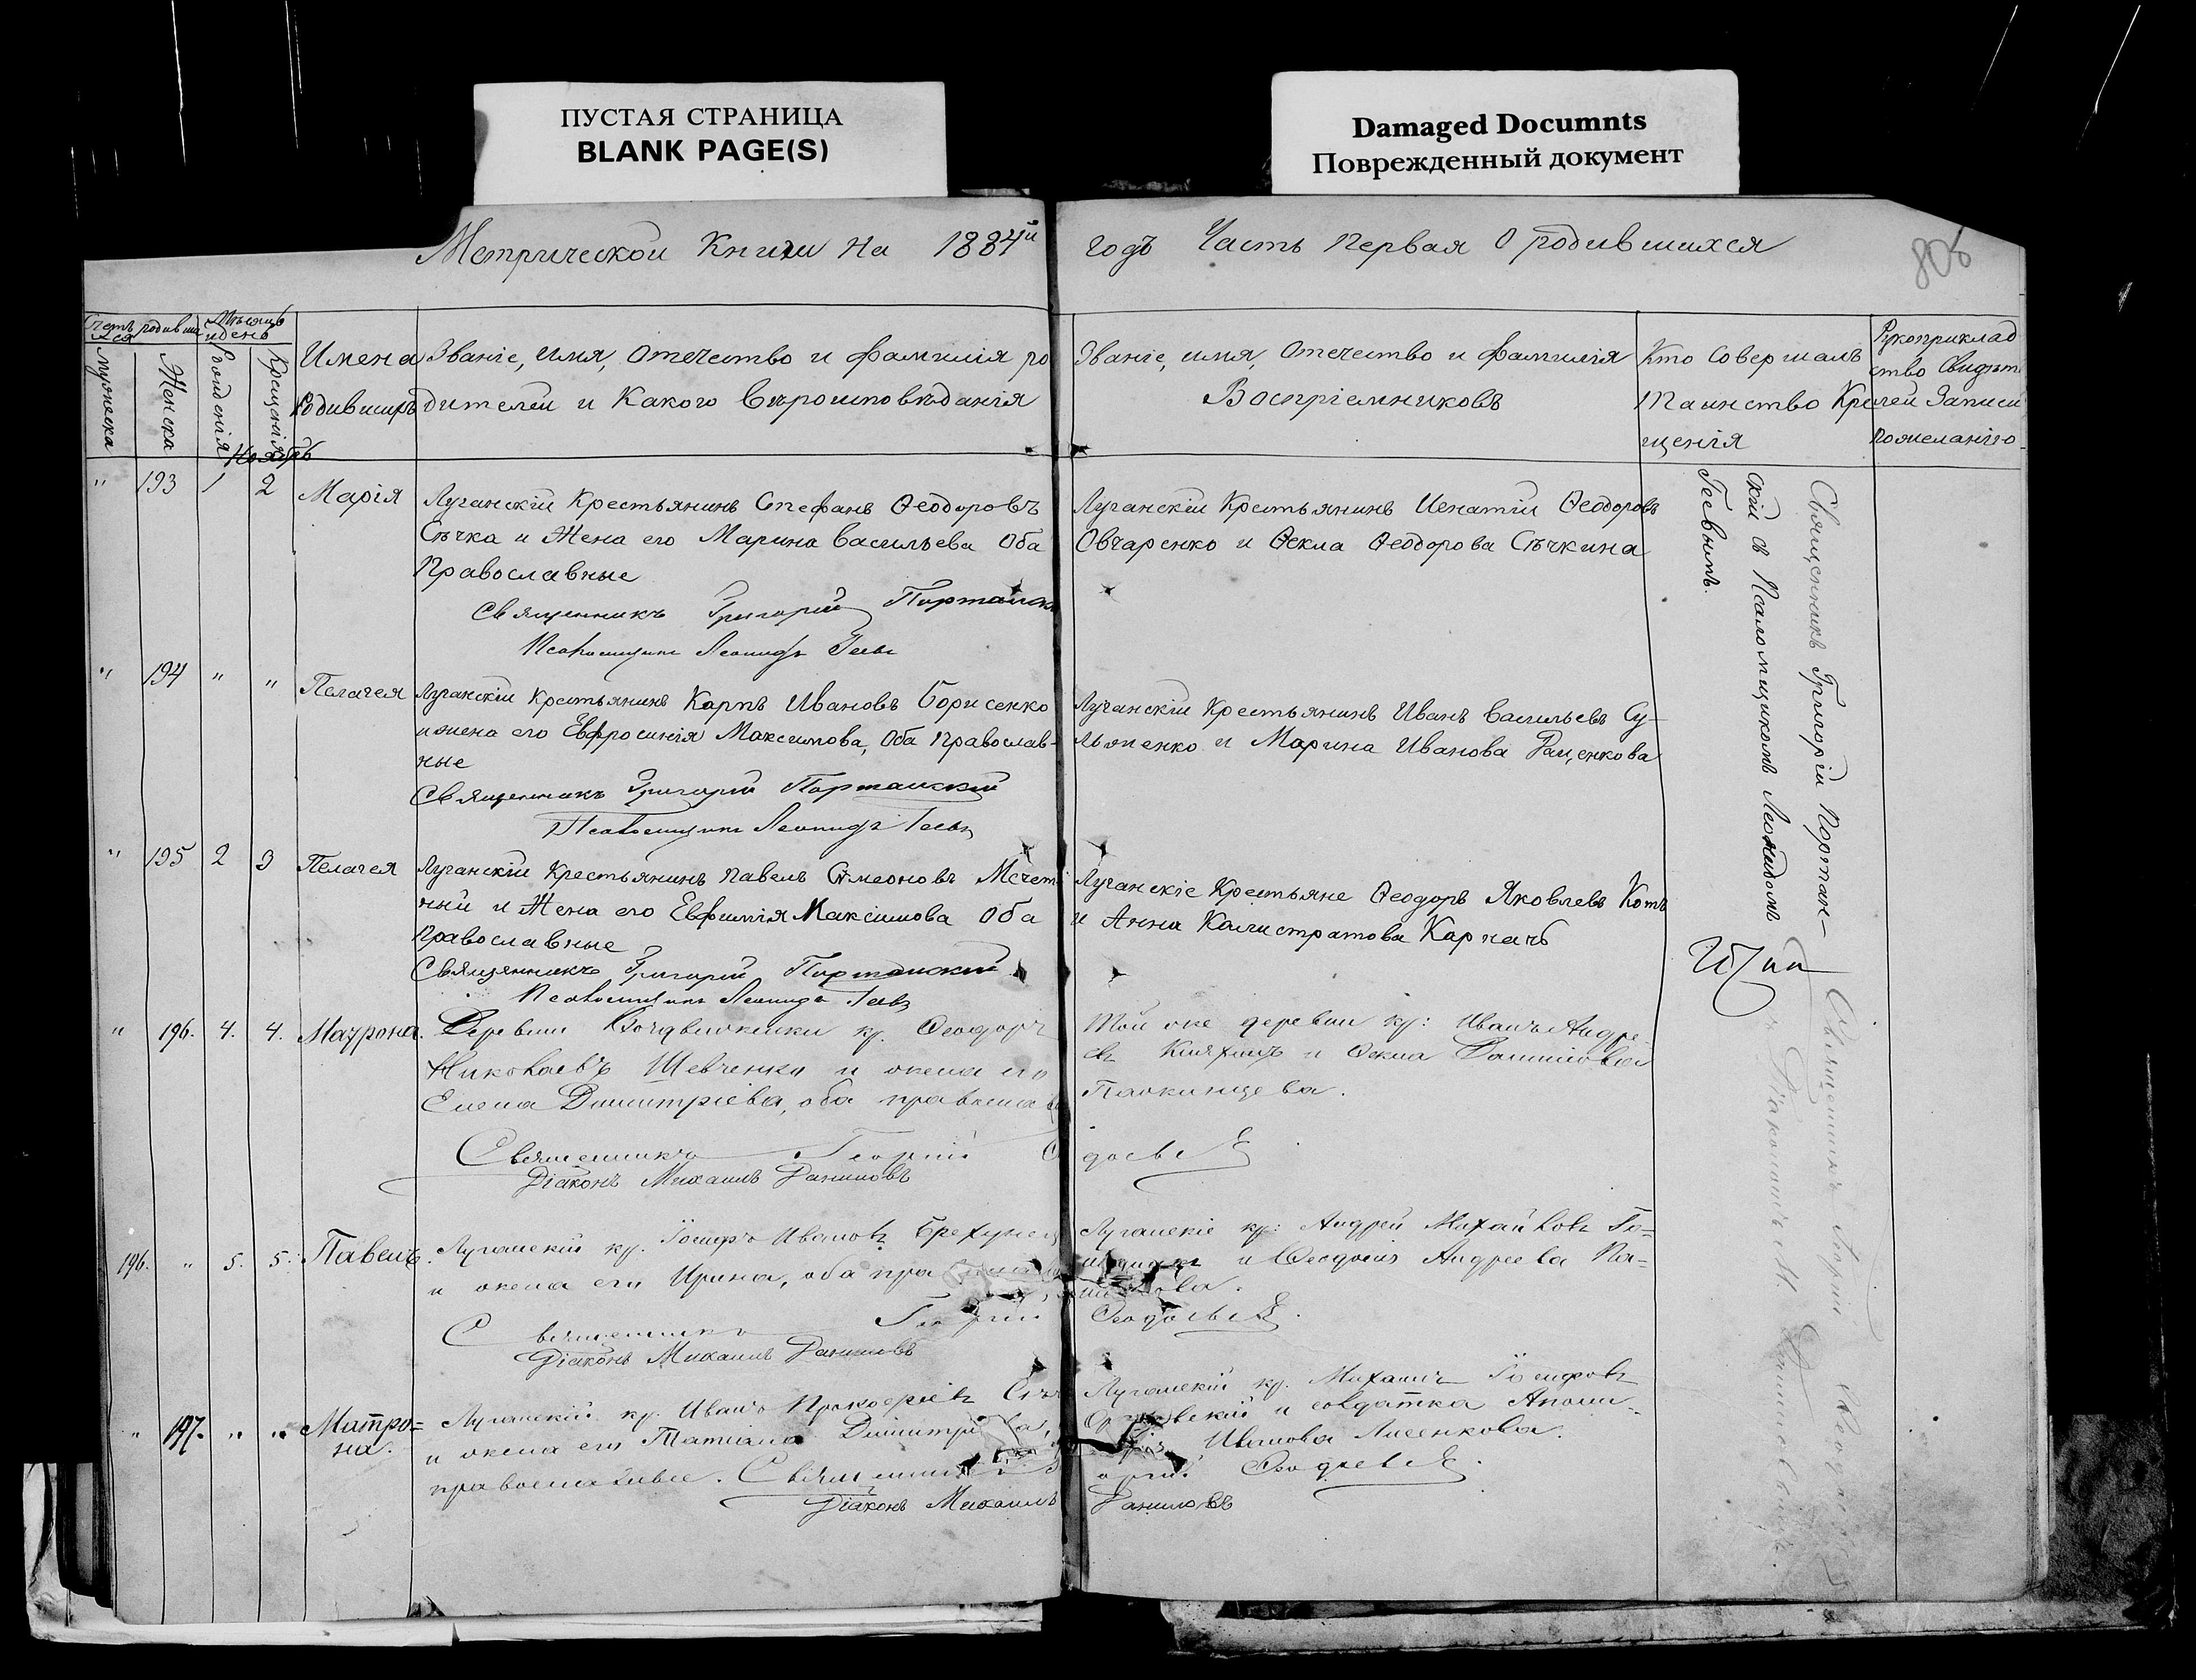 ПУСТАЯ СТРАНИЦА
BLANK PAGE(S)
Damaged Documnts
Поврежденный документ
Метрической Книги на 1884й годъ Часть первая О родившихся
806
Счетъ родивших
ся
Мужеска
Женска
Мѣсяцъ
и день
Рожденія
Крещенія
Имена
Родившихъ
Званіе, имя, отечество и фамилія ро
дителей и Какого вѣроисповѣданія
Званіе, имя, отечество и фамилія
Воспріемниковъ
Кто совершалъ
Таинство Кре
щенія
Рукоприклад
ство свидѣт
лей записи
по желанію
Ноябрь
" 193 1 2 Марія
Луганскій Крестьянинъ Стефанъ Ѳеодоровъ
Сѣчка и Жена его Марина Васильева Оба
Православные
Священникъ Григорій Портанск
Псаломщикъ Леонидъ Геевъ
Луганскій Крестьянинъ Игнатій Ѳеодоровъ
Овчаренко и Ѳекла Ѳеодорова Сѣчкина
" 194 " " Пелагея
Луганскій Крестьянинъ Карпъ Ивановъ Борисенко
и жена его Евфросинія Максимова, Оба Православ-
ные
Священникъ Григорій Портанский
Псаломщикъ Леонидъ Геевъ
Луганскій Крестьянинъ Иванъ Васильевъ Су-
и Марина Иванова
" 195 2 3 Пелагея
Луганскій Крестьянинъ Павелъ Симеоновъ Мечет
ный и Жена его Евфимія Максимова Оба
Православные
Священникъ Григорій Портанский
Псаломщикъ Леонидъ Геевъ
Луганскіе Крестьяне Ѳеодоръ Яковлевъ Котъ
и Анна Калистратова Карначъ
Священникъ Григорій Портан-
скій съ Псаломщикомъ Леонидомъ
Геевымъ.
" 196. 4. 4. Матрона.
Деревни кр. Ѳеодоръ
Николаевъ Шевченко и жена его
Елена Димитріева, оба православ
Священникъ Георгій
Діаконъ Михаилъ Даниловъ
Той же деревни кр: Иванъ Андре
евъ и Ѳекла Данилова
196. " 5. 5. Павелъ.
Луганскій кр. Іосифъ Ивановъ Брехунец
и жена его Ирина, оба пра
Священникъ Георгій
Діаконъ Михаилъ Даниловъ
Луганскіе кр: Андрей Михайловъ Го-
и Ѳеодосія Андреева Па-
" 197. " " Матро=
на.
Луганскій кр. Иванъ Прокофіевъ
и жена его Татіана Димитрі
православные. Священникъ
Діаконъ Михаилъ Даниловъ
Луганскій кр. Михаилъ Іосифовъ
и солдатка
Иванова Лисенкова.
Священникъ Георгій
съ Діакономъ М. Даниловымъ.